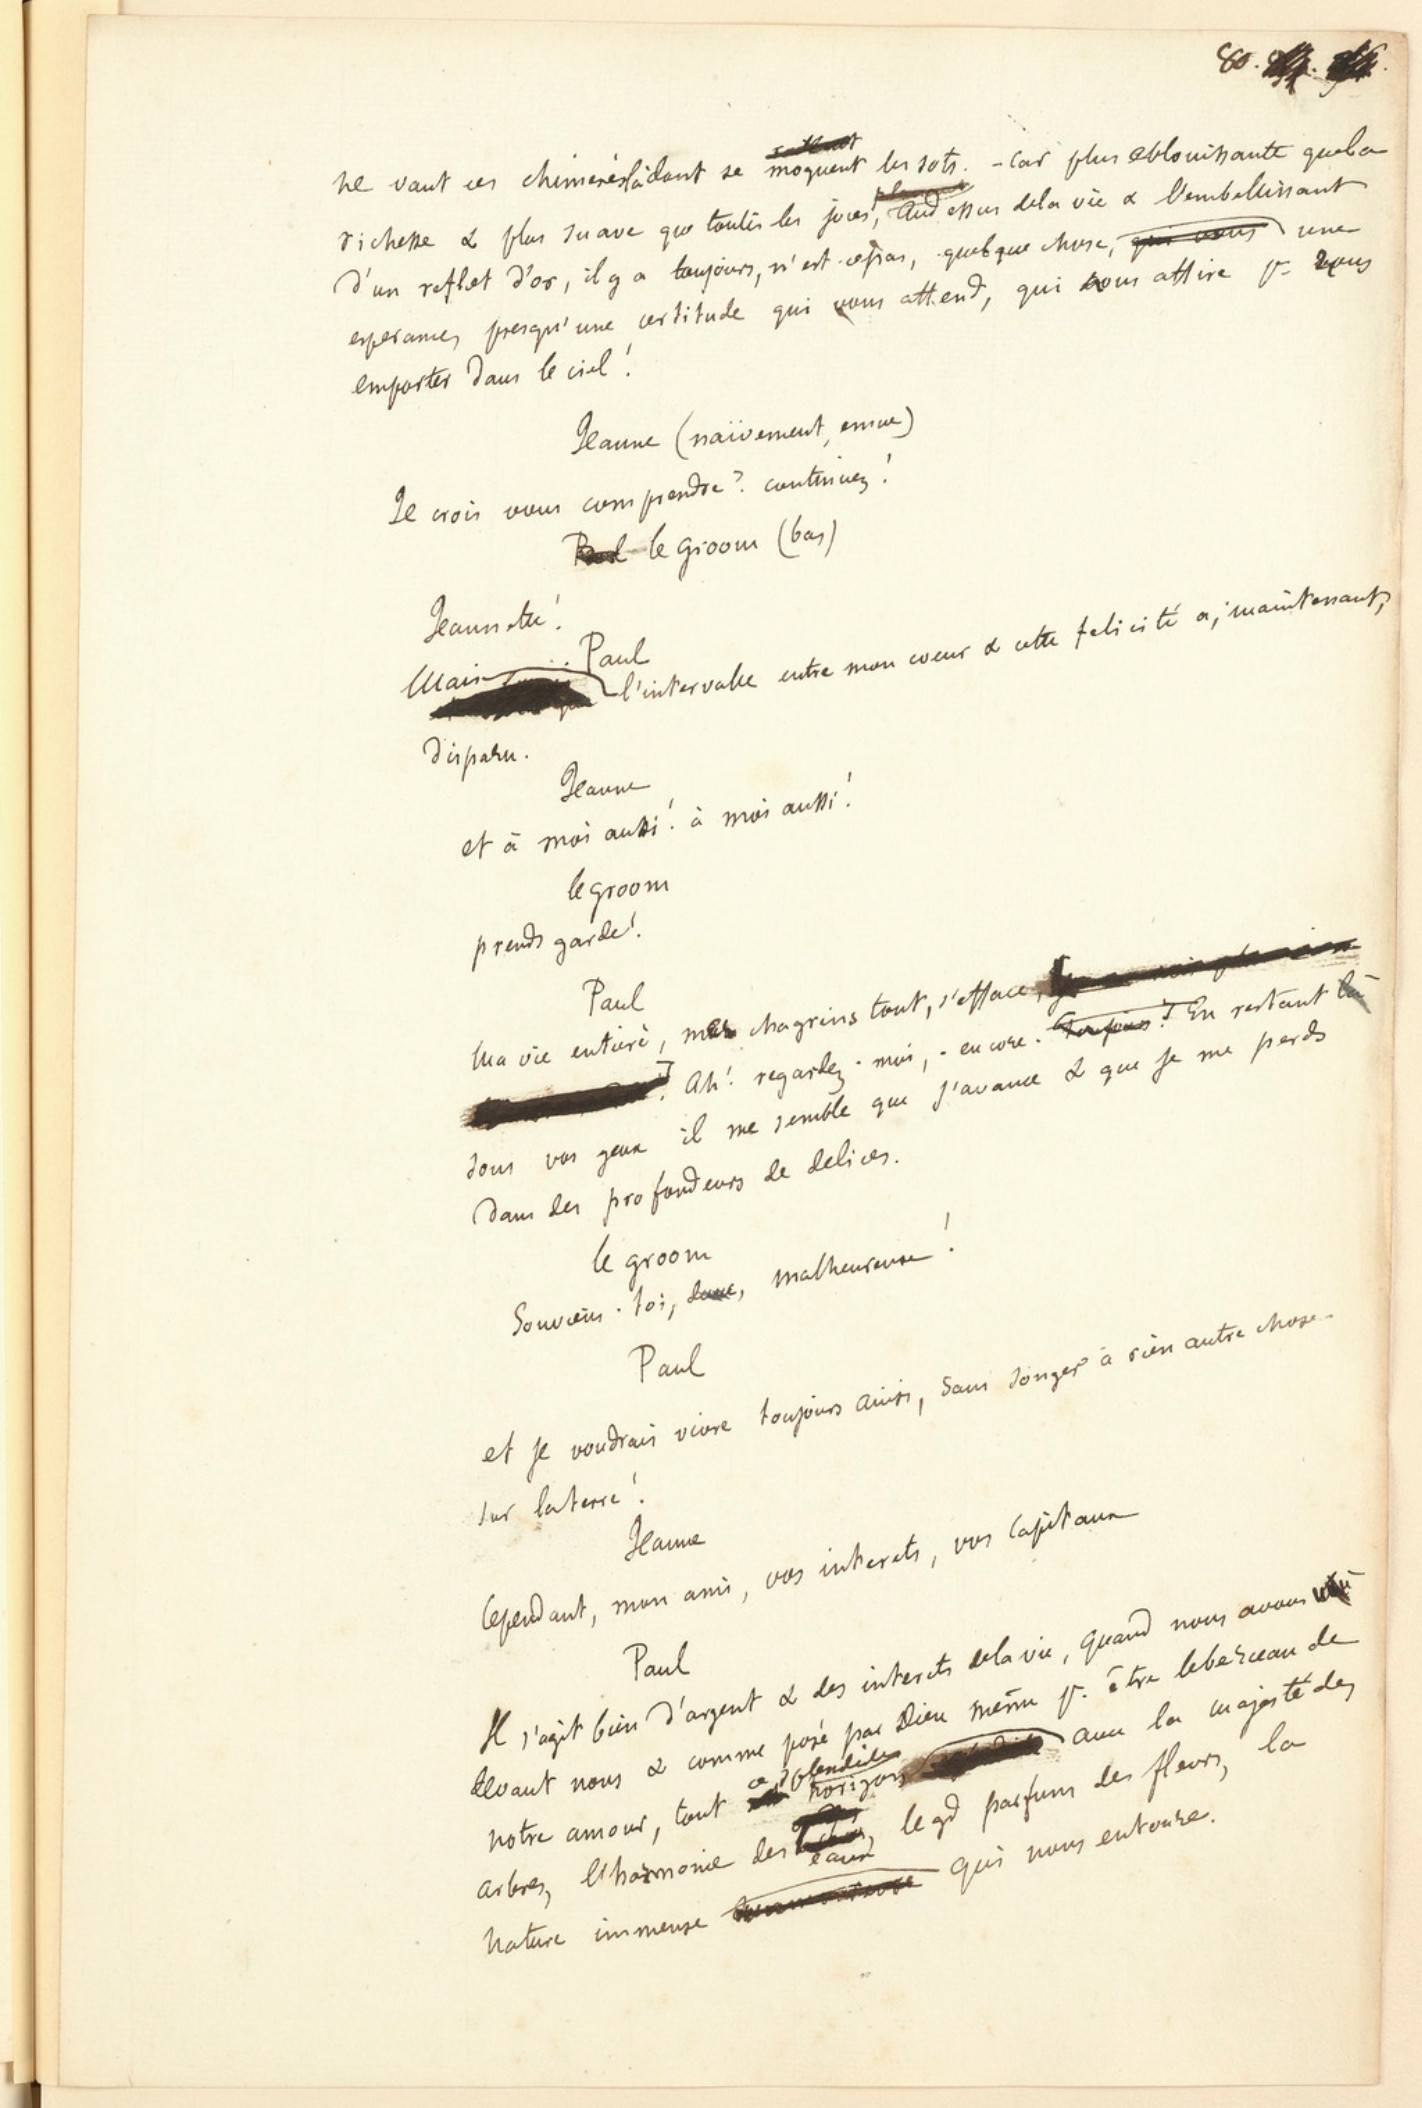 80.
ne vaut ces chimères là dont se moquent les sots. - Car plus eblouissante que la
richesse & plus suave que toutes les joies, Audessus dela vie & l'embellissant
d'un reflet d'or, il y a toujours, n'est-cepas, quelque chose, qui vous une
esperance, presqu'une certitude qui vous attend, qui vous attire pr vous
emporter dans le ciel!
Jeanne (naïvement, emue)
Je crois vous comprendre? continuez!
Paul le groom (bas)
Jeannette!
Paul
Mais l'intervalle entre mon coeur & cette felicité a, maintenant,
disparu.
Jeanne
et à moi aussi! à moi aussi!
le groom
prends garde!
Paul
Ma vie entière, mes chagrins tout, s'efface, je ne vois plus rien
Ah! regardez-moi, - encore. Toujours! En restant là
sous vos yeux il me semble que j'avance & que je me perds
dans des profondeurs de delices.
le groom
Souviens-toi, donc, malheureuse!
Paul
et je voudrais vivre toujours ainsi, sans songer à rien autre chose
sur la terre!
Jeanne
Cependant, mon ami, vos interets, vos capitaux
Paul
Il s'agit bien d'argent & des interets dela vie, quand nous avons
devant nous & comme posé par Dieu même pr. être leberceau de
notre amour, tout ce splendide horizon avec la majesté des
arbres, l'harmonie des eaux, le gd parfum des fleurs, la
nature immense qui nous entoure.